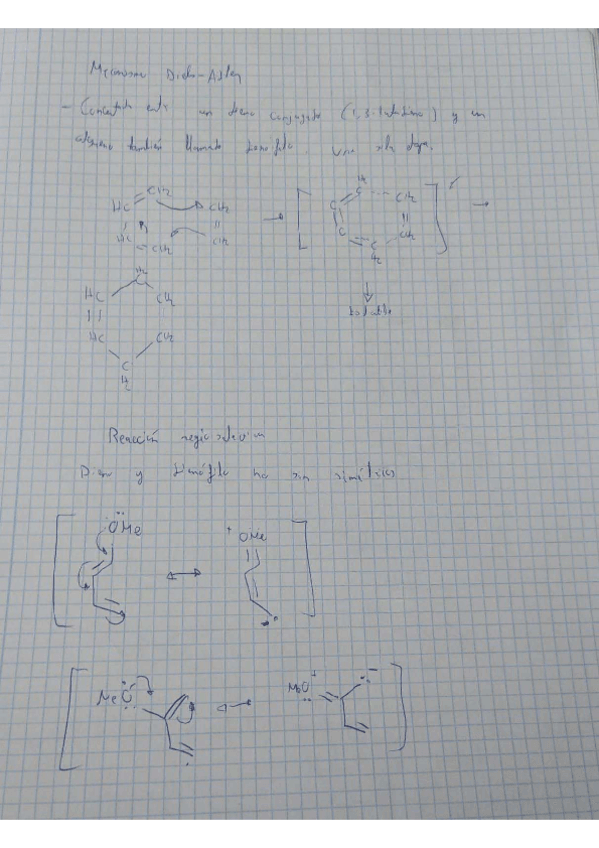 Mecanismo Diels-Alder
- Concertada entre un dieno conjugado (1,3-butadieno) y un
alqueno también llamado dienófilo, una sola etapa.
CH₂
HC CH₂
HC CH₂ CH₂
H
C CH₂
C
C CH₂
C
H₂
H₂
C
HC CH₂
HC CH₂
C
H₂
Reacción regioselectiva
Dieno y dienófilo no son simétricos
ÖMe
+
OMe
MeO
MeO⁺